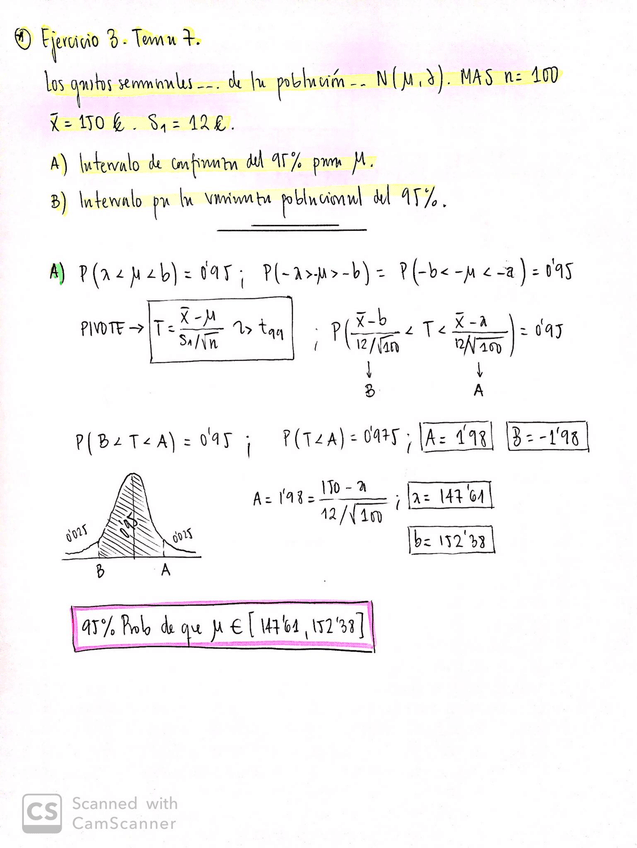 Ejercicio 3. Tema 7.
Los gastos semanales... de la población.. N(μ, ∂). MAS n= 100
x̄ = 150 €. S₁ = 12 €.
A) Intervalo de confianza del 95% para μ.
B) Intervalo pa la varianza poblacional del 95%.
A) P(a < μ < b) = 0'95 ; P(-a>-μ>-b) = P(-b<-μ<-a) = 0'95
PIVOTE → T = x̄ - μ / S₁/√n ~> t₉₉ ; P( x̄-b / 12/√100 < T < x̄-a / 12/√100 ) = 0'95
↓ ↓
B A
P(B<T<A) = 0'95 ; P(T<A) = 0'975 ; A = 1'98 B = -1'98
A = 1'98 = 150 - a / 12/√100 ; a = 147'61
b = 152'38
0'025 0'95 0'025
B A
95% Prob de que μ ∈ [147'61, 152'38]
CS Scanned with
CamScanner